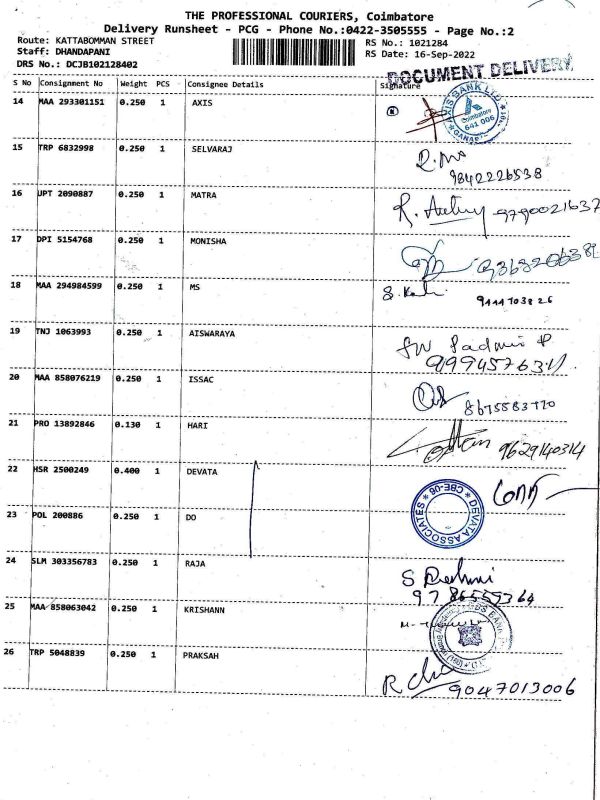 THE PROFESSIONAL COURIERS, Coimbatore
Delivery Runsheet - PCG - Phone No.:0422-3505555 - Page No.:2
Route: KATTABOMMAN STREET
Staff: DHANDAPANI
DRS No.: DCJB102128402
RS No.: 1021284
RS Date: 16-Sep-2022
DOCUMENT DELIVERY
S No Consignment No Weight PCS Consignee Details Signature
14 MAA 293301151 0.250 1 AXIS
AXIS BANK LTD. Coimbatore 641 006
15 TRP 6832998 0.250 1 SELVARAJ
9842226538
16 UPT 2090887 0.250 1 MATRA
9790021637
17 DPI 5154768 0.250 1 MONISHA
18 MAA 294984599 0.250 1 MS
9444703826
19 TNJ 1063993 0.250 1 AISWARAYA
20 MAA 858076219 0.250 1 ISSAC
21 PRO 13892846 0.130 1 HARI
9629140314
22 HSR 2500249 0.400 1 DEVATA
DEVATA ASSOCIATES * CBE-06 *
23 POL 200886 0.250 1 DO
24 SLM 303356783 0.250 1 RAJA
25 MAA 858063042 0.250 1 KRISHANN
26 TRP 5048839 0.250 1 PRAKSAH
9047013006